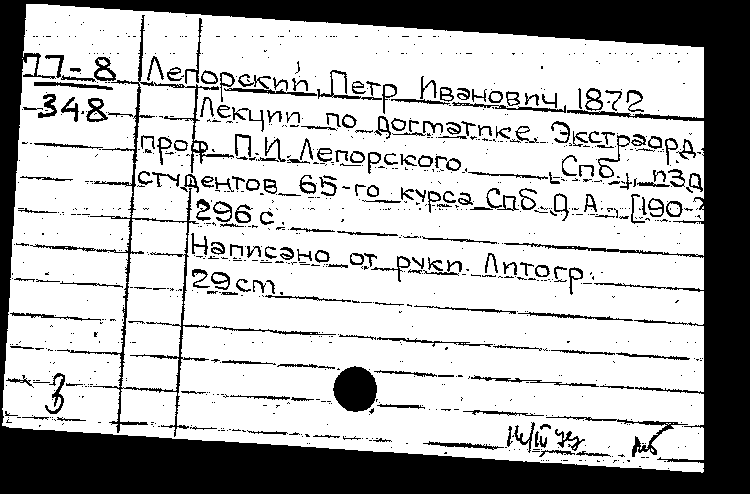 П7-8
348
Лепорский, Петр Иванович, 1872
Лекции по догматике. Экстраорд.
проф. П.И. Лепорского. [Спб.], изд.
студентов 65-го курса Спб. Д.А., [190-?
296 с.
Написано от руки. Литогр.
29 см.
3